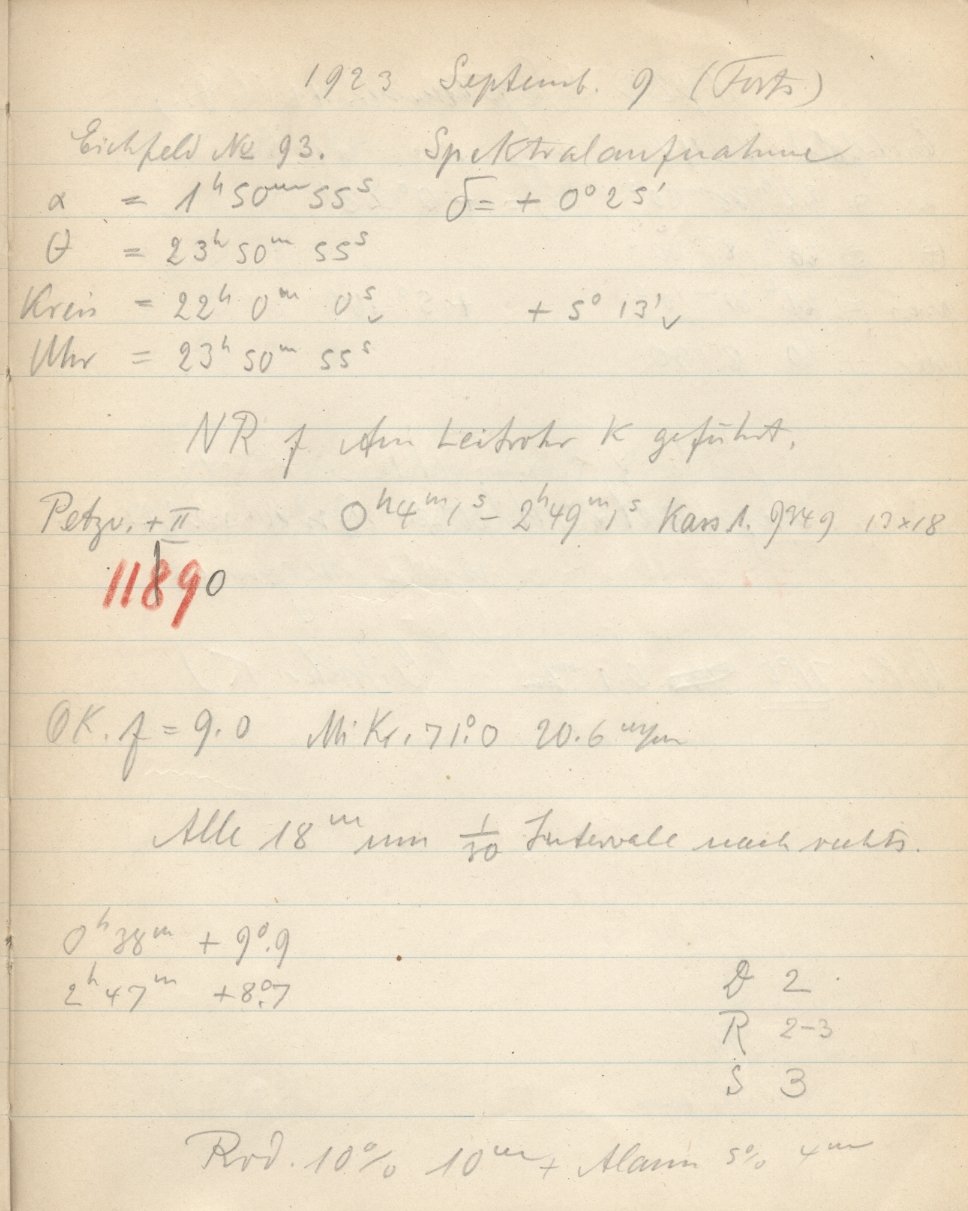 1923 Septemb. 9 (Forts.)
Eichfeld No 93. Spektralaufnahme
α = 1h 50m 55s δ = + 0° 25'
θ = 23h 50m 55s
Kreis = 22h 0m 0s + 5° 13'
Uhr = 23h 50m 55s
NR f Am Leitrohr K geführt.
Petzv. + II 0h 4m 1s – 2h 49m 1s Kass 1. 9249 13 x 18
11890
OK. f = 9.0 Mikr. 71°.0 20.6
Alle 18m um 1/30 Intervalle nach rechts.
0h 38m + 9°.9
2h 47m + 8°.7
D 2
R 2-3
S 3
Rod. 10% 10m + Alaun 5% 4m